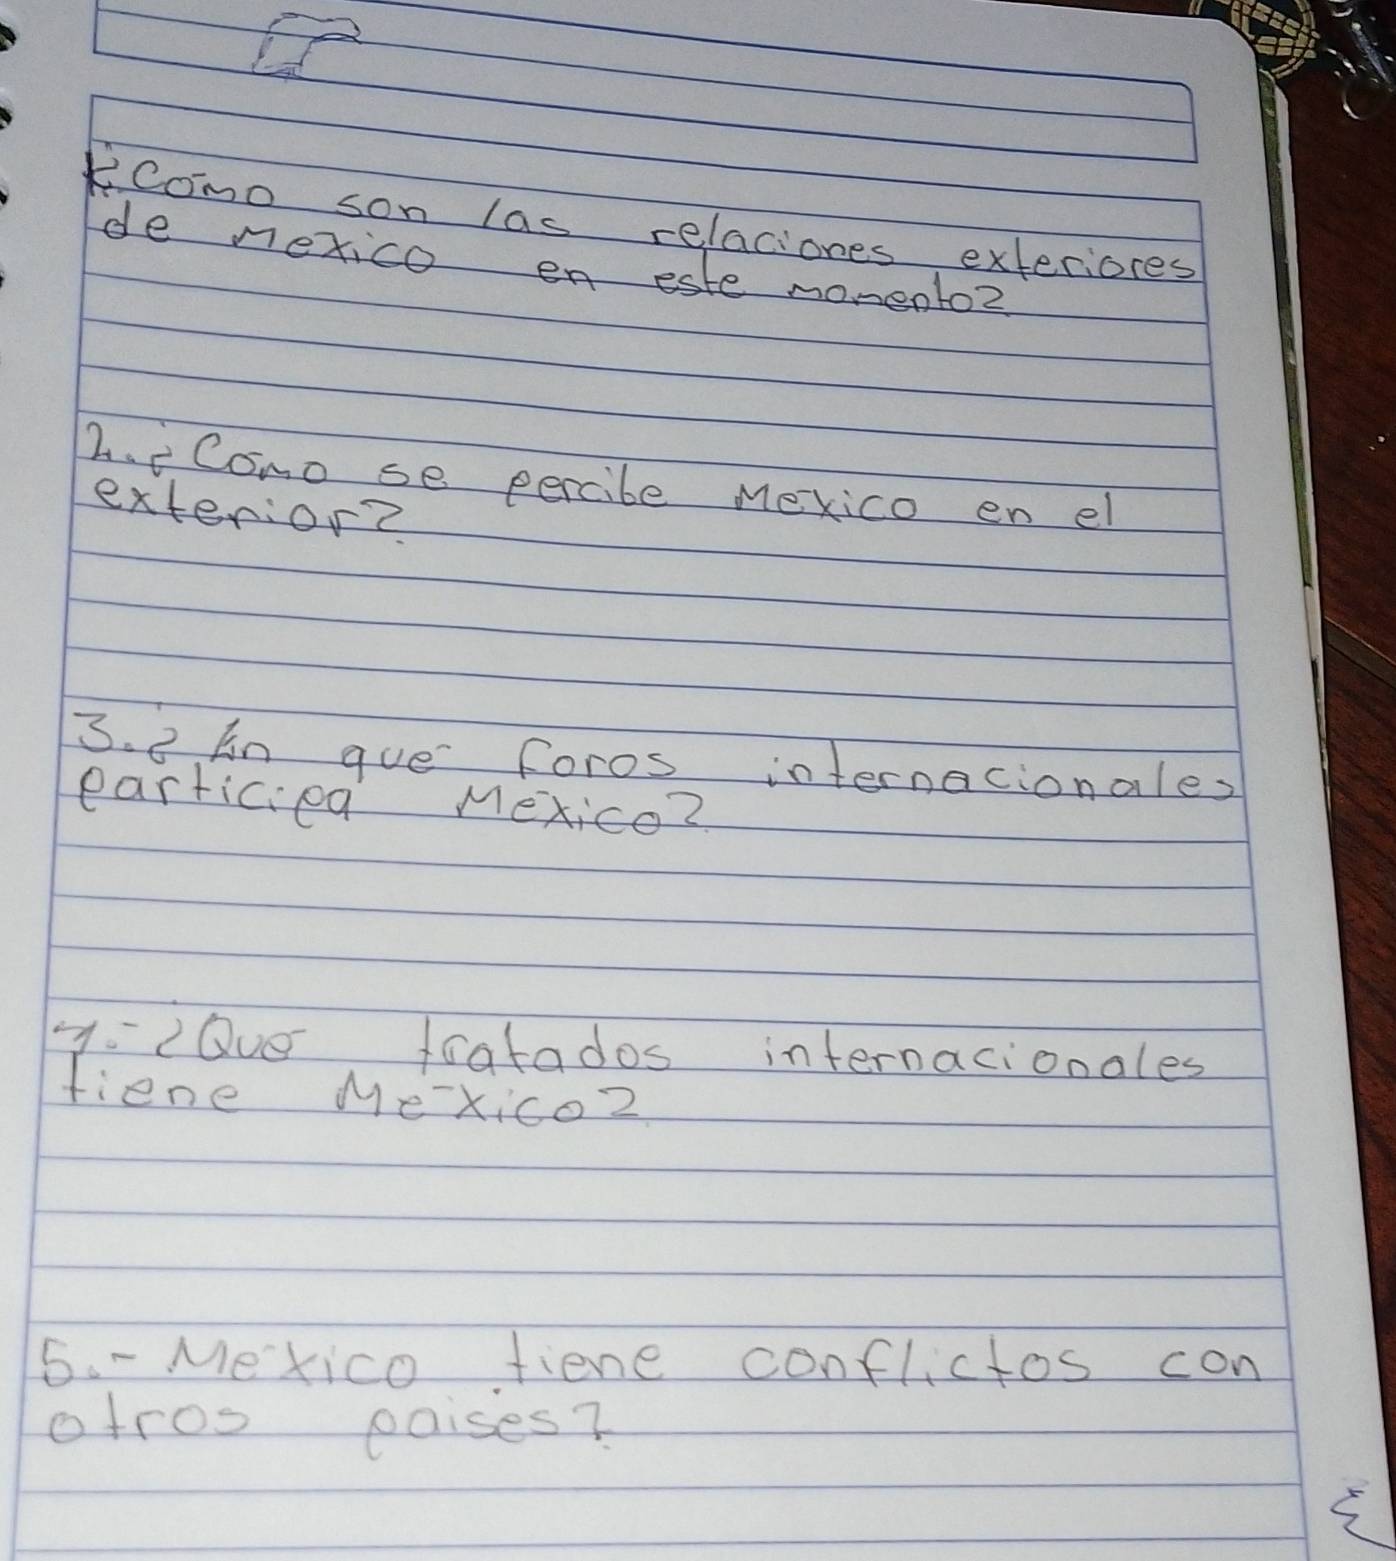 1.¿Cómo son las relaciones exteriores
de México en este momento?
2.¿Cómo se percibe México en el
exterior?
3.¿En qué foros internacionales
participa México?
4.-¿Qué tratados internacionales
tiene México?
5.-México tiene conflictos con
otros paises?